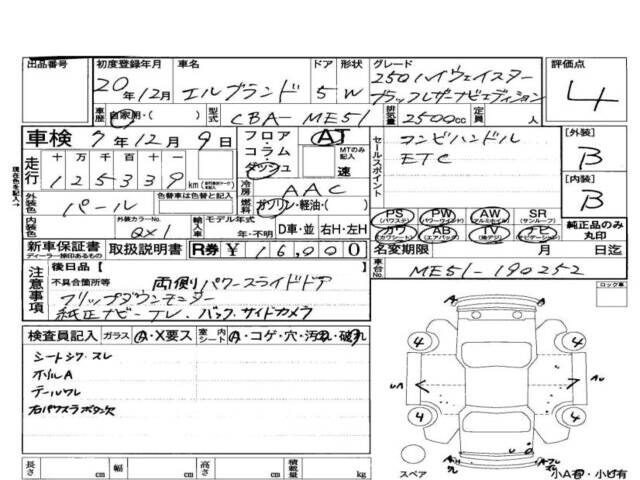 出品番号 初度登録年月 車名 ドア 形状 グレード 評価点
20年12月 エルグランド 5 W 250ハイウェイスター
ブラックレザーナビエディション 4
車歴 自家用・( ) 型式 CBA-ME51 排気量 2500cc 定員 人
車検 7年12月9日 フロア・コラム・ダッシュ AT MTのみ記入 速
セールスポイント コンビハンドル
ETC
[外装] B
[内装] B
走行 十万千百十一
125339 km
冷房 AAC
外装色 パール 色替車は色替と記入 燃料 ガソリン・軽油・( )
内装色 外装カラーNo. QX1 輸入車 モデル年式 年・不明 D車・並 右H・左H
PS (パワステ) PW (パワーウィンド) AW (アルミホイル) SR (サンルーフ)
カワ (カワシート) AB (エアバック) TV (地デジ) ナビ (ナビゲーション)
純正品のみ丸印
新車保証書 ディーラー捺印あるもの 取扱説明書 R券 ¥16,000
名変期限 月 日迄
車台No. ME51-190252
現在色を記入→
注意事項 後日品 [ ]
不具合箇所等 両側パワースライドドア
フリップダウンモニター
純正ナビ-TV、バック、サイドカメラ
ロック車
検査員記入 ガラス A・X要ス 室内シート A・コゲ・穴・汚れ・破れ
シートシワ・スレ
ホイルA
テールワレ
右パワスラボタン欠
4 4
4 4
スペア
小A有・小ビ有
長さ cm 幅 cm 高さ cm 積載量 kg